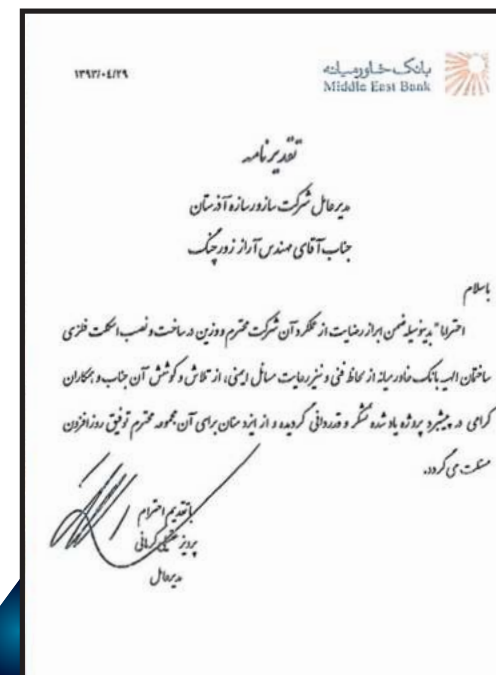 ۱۳۹۳/۰۴/۲۹
بانک خاورمیانه
Middle East Bank
تقدیرنامه
مدیرعامل شرکت سازور سازه آذرستان
جناب آقای مهندس آراز زورچنگ
باسلام
احتراما" بدینوسیله ضمن ابراز رضایت از عملکرد آن شرکت محترم و وزین در ساخت و نصب اسکلت فلزی
ساختمان الهیه بانک خاورمیانه از لحاظ فنی و نیز رعایت مسائل ایمنی، از تلاش و کوشش آن جناب و همکاران
گرامی در پیشبرد پروژه یاد شده تشکر و قدردانی گردیده و از ایزد منان برای آن مجموعه محترم توفیق روزافزون
مسئلت می گردد.
با تقدیم احترام
پرویز کرمانی
مدیرعامل